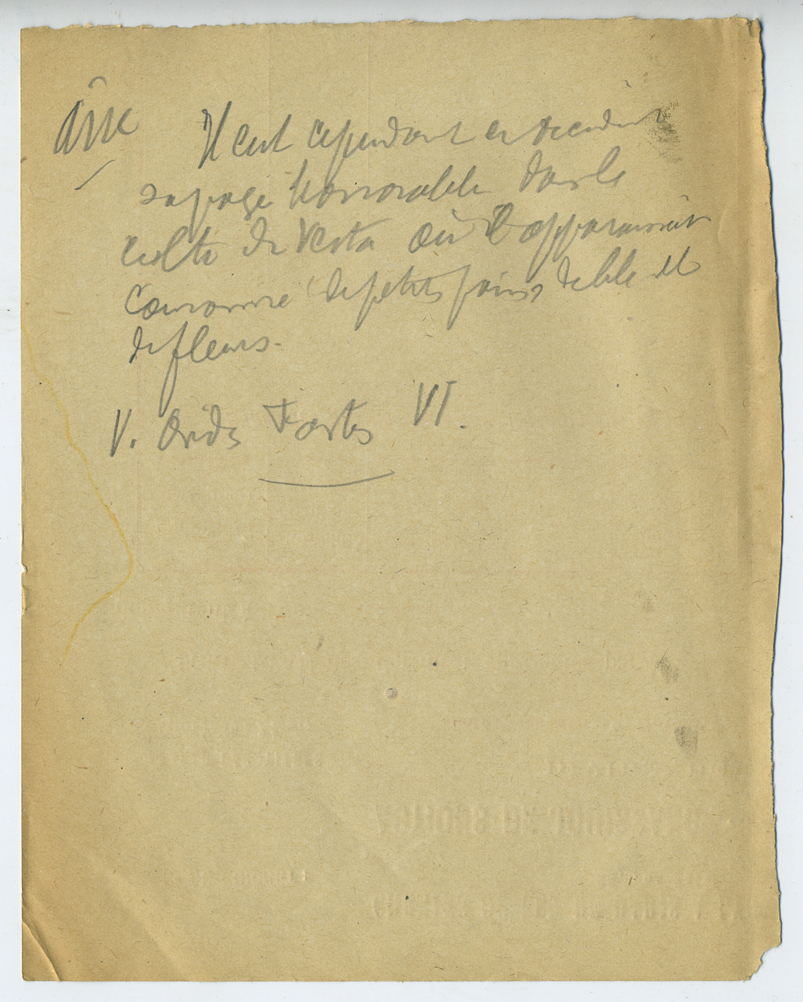 âne Il eut cependant en occident
sa page honorable dans le
culte de Vesta où il apparaissait
couronné de petits pains de blé et
de fleurs.
V. Ovide Fastes VI.